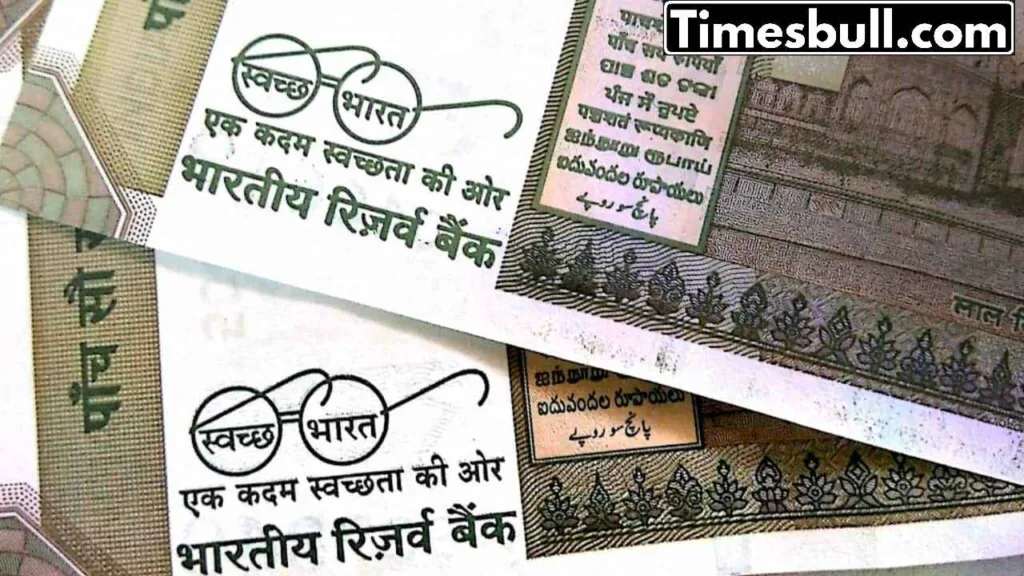 Timesbull.com
स्वच्छ भारत
एक कदम स्वच्छता की ओर
भारतीय रिज़र्व बैंक
ਪੰਜ ਸੌ ਰੁਪਏ
ஐந்நூறு ரூபாய்
ఐదువందల రూపాయలు
پانچ سو روپے
लाल
पांच सौ
स्वच्छ भारत
एक कदम स्वच्छता की ओर
भारतीय रिज़र्व बैंक
ஐந்நூறு
ఐదువందల రూపాయలు
پانچ سو روپے